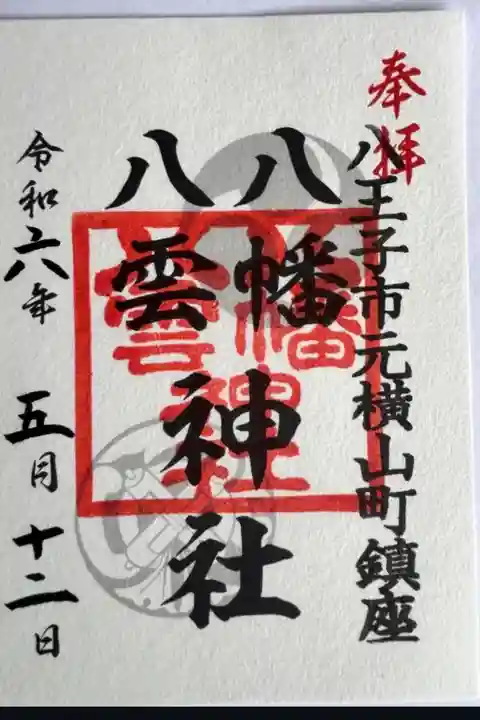 奉拝
八王子市元横山町鎮座
八幡
八雲
神社
令和六年
五月十二日